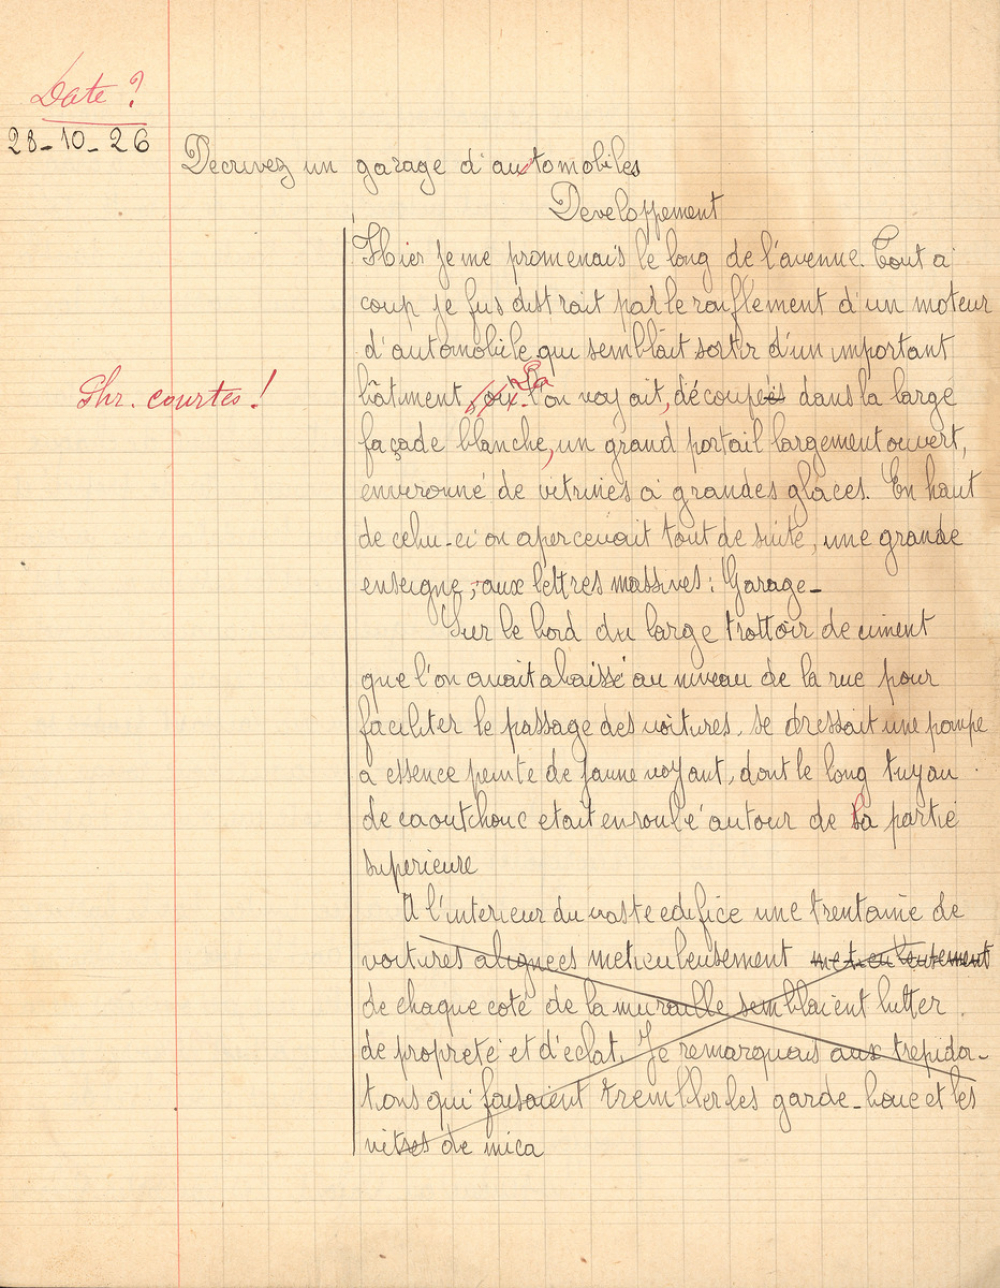 Date ?
28-10-26
Decrivez un garage d'automobiles
Developpement
Hier je me promenais le long de l'avenue. Tout a
coup je fus distrait par le ronflement d'un moteur
d'automobile qui semblait sortir d'un important
La
Phr. courtes !
bâtiment, où l'on voyait, découpés dans la large
façade blanche, un grand portail largement ouvert,
environné de vitrines a grandes glaces. En haut
de celui-ci on apercevait tout de suite, une grande
enseigne, aux lettres massives : Garage-
Sur le bord du large trottoir de ciment
que l'on avait abaissé au niveau de la rue pour
faciliter le passage des voitures, se dressait une pompe
a essence peinte de jaune voyant, dont le long tuyau
de caoutchouc etait enroulé autour de sa partie
superieure
A l'interieur du vaste edifice une trentaine de
voitures alignees meticuleusement meticuleusement
de chaque coté de la muraille semblaient lutter
de propreté et d'eclat. Je remarquais aux trepida-
tions qui faisaient trembler les garde-boue et les
vitres de mica